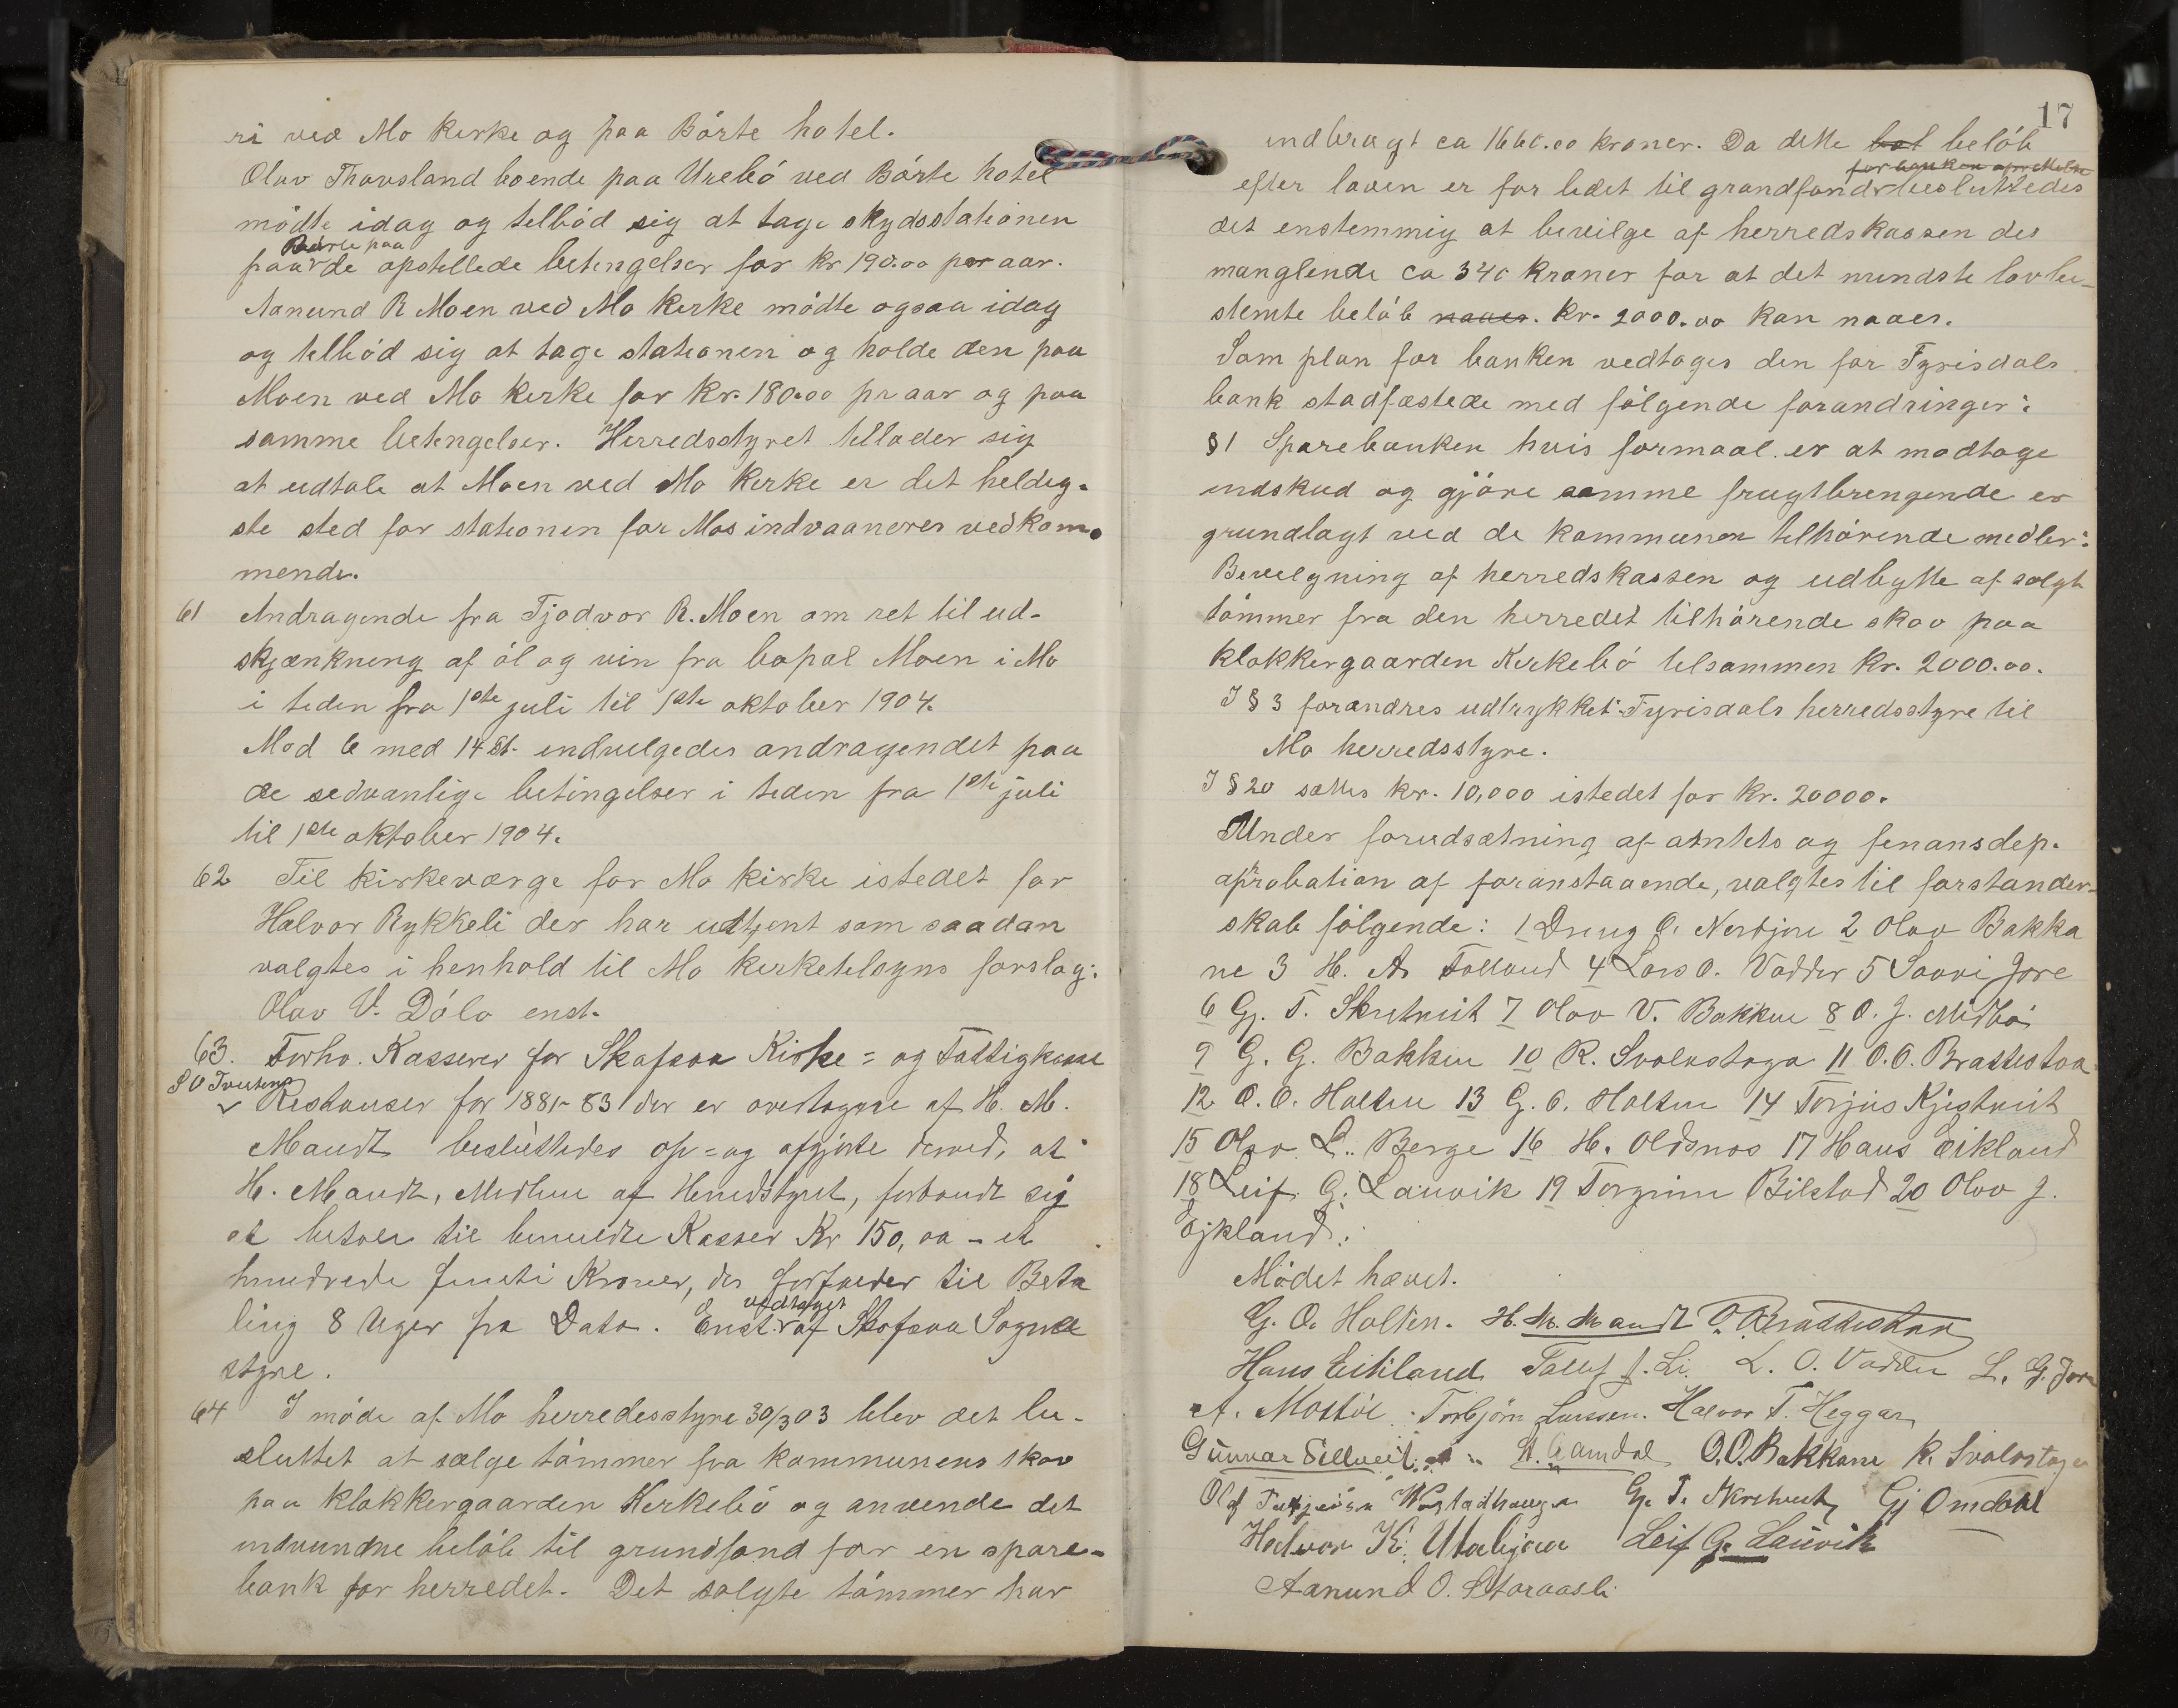 ri ved Mo kirke og paa Börte hotel.
Olav Thovsland boende paa Urebö ved Börte hotel
mödte idag og tilböd sig at tage skydsstationen
Börte paa
paa de opstillede betingelser for kr 190.00 pr aar.
Aanund R Moen ved Mo kirke mödte ogsaa idag
og tilböd sig at tage stationen og holde den paa
Moen ved Mo kirke for kr. 180.00 pr aar og paa
samme betingelser. Herredsstyret tillader sig
at udtale at Moen ved Mo kirke er det heldig-
ste sted for stationen for Mos indvaaneres vedkom-
mende.
61 Andragende fra Tjodvor R. Moen om ret til ud-
skjænkning af öl og vin fra bopæl Moen i Mo
i tiden fra 1ste juli til 1ste oktober 1904.
Mod 6 med 14 st. indvilgedes andragendet paa
de sedvanlige betingelser i tiden fra 1ste juli
til 1ste oktober 1904.
62 Til kirkeværge for Mo kirke istedet for
Halvor Rykkeli der har udtjent som saadan
valgtes i henhold til Mo kirketilsyns forslag:
Olav V. Dölo enst.
63. Forhv. Kasserer for Skafsaa Kirke= og Fattigkasse
S O Tveitens
Restanser for 1881-83 der er overtagne af H. M.
Mandt besluttedes op= og afgjorte derved, at
H. Mandt, Medlem af Herredstyret, forbandt sig
at betale til bemeldte Kasser Kr 150,00 - et
hundrede femti Kroner, der forfalder til Beta
ling 8 Uger fra Dato. Enst. vedtaget af Skafsaa Sogne
styre.
64 I möde af Mo herredsstyre 30/3 03 blev det be-
sluttet at sælge tömmer fra kommunens skov
paa klokkergaarden Kirkebö og anvende det
indvundne belöb til grundfond for en spare-
bank for herredet. Det solgte tömmer har
17
indbragt ca 1660.00 kroner. Da dette bel belöb
for banken oprettelse
efter loven er for lidet til grundfond besluttedes
det enstemmig at bevilge af herredskassen det
manglende ca 340 kroner for at det mindste lovbe-
stemte belöb naaes. kr. 2000.00 kan naaes.
Som plan for banken vedtages den for Tyrisdals
bank stadfæstede med fölgende forandringer:
§1 Sparebanken hvis formaal er at modtage
indskud og gjöre samme frugtbringende er
grundlagt ved de kommunen tilhörende midler:
Bevilgning af herredskassen og udbytte af solgt
tömmer fra den herredet tilhörende skov paa
klokkergaarden Kirkebö tilsammen kr. 2000.00.
I § 3 forandres udtrykket: Tyrisdals herredsstyre til
Mo herredsstyre.
I § 20 sættes kr. 10,000 istedet for kr. 20000.
Under forudsætning af amtets og finansdep.
aprobation af foranstaaende, valgtes til forstander-
skab fölgende: 1 Dreng O. Nordjore 2 Olav Bakka
ne 3 H. A. Tolland 4 Lars O. Vadder 5 Saavi Jore
6 Gj. T. Skretveit 7 Olav V. Bakken 8 O. J. Midbö
9 G. G. Bakken 10 R. Svalastoga 11 O. O. Brattestaa
12 O. O. Holten 13 G. O. Holten 14 Torjus Kjestveit
15 Olav L. Berge 16 H. Oldsnos 17 Hans Eikland
18 Leif G. Lauvik 19 Torgrim Bilstad 20 Olav J.
Ejkland.
Mödet hævet.
G. O. Holten. H. M. Mandt O. Brattestaa
Hans Eikland Tallef J. Li. L. O. Vadder L. G. Jore
A. Mostöl Torbjörn Larssen. Halvor T. Heggar
Gunnar A. Aamdal O. O. Bakkane R. Svalastoga
Olaf G. T. Skretveit Gj Omdal
Halvor K. Utabjaa Leif G. Lauvik
Aanund O. Storaasli